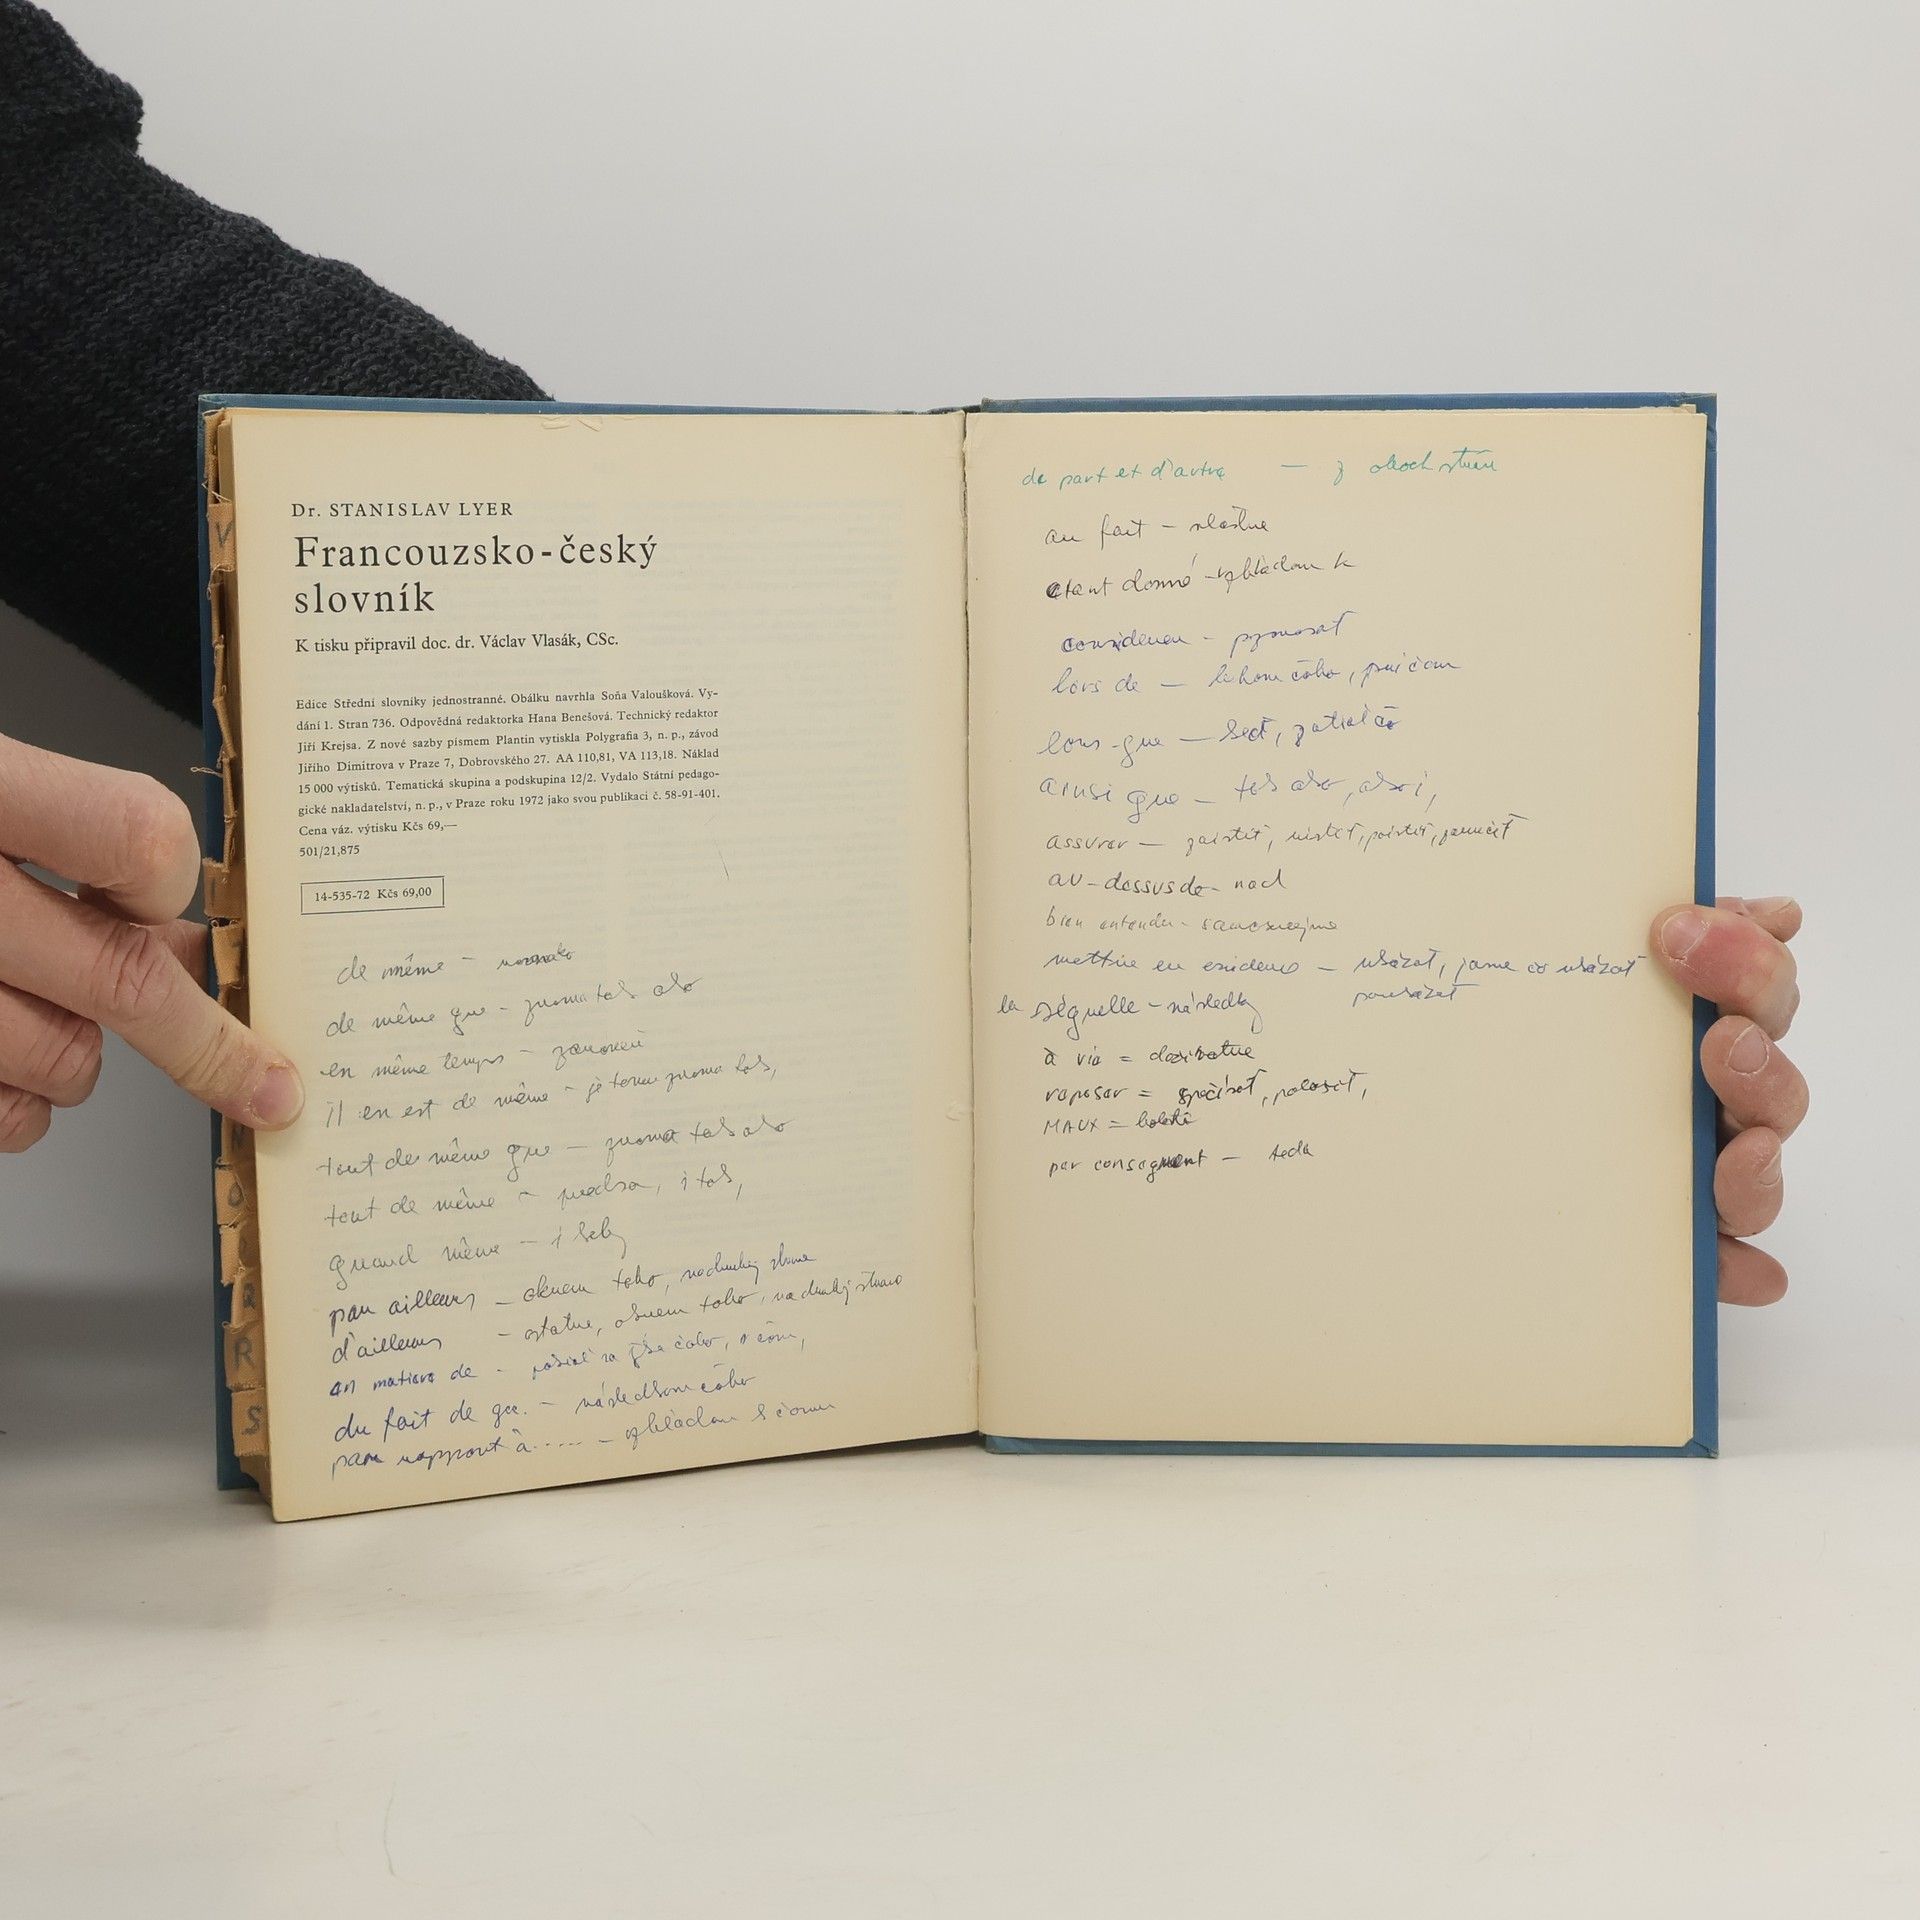 Dr. STANISLAV LYER
Francouzsko-český
slovník
K tisku připravil doc. dr. Václav Vlasák, CSc.
Edice Střední slovníky jednostranné. Obálku navrhla Soňa Valoušková. Vy-
dání 1. Stran 736. Odpovědná redaktorka Hana Benešová. Technický redaktor
Jiří Krejsa. Z nové sazby písmem Plantin vytiskla Polygrafia 3, n. p., závod
Jiřího Dimitrova v Praze 7, Dobrovského 27. AA 110,81, VA 113,18. Náklad
15 000 výtisků. Tematická skupina a podskupina 12/2. Vydalo Státní pedago-
gické nakladatelství, n. p., v Praze roku 1972 jako svou publikaci č. 58-91-401.
Cena váz. výtisku Kčs 69,—
501/21,875
14-535-72 Kčs 69,00
de même – rovnako
de même que – rovnako ako
en même temps – zároveň
Il en est de même – je tomu rovnako tak,
tout de même que – tak ako
tout de même – predsa, i tak,
quand même – i keby
par ailleurs – okrem toho, na druhej strane
d'ailleurs – ostatne, okrem toho, na druhej strane
en matière de – pokiaľ sa týka čoho, v čom,
du fait de qcc. – následkom čoho
par rapport à ..... – vzhľadom k čomu
V
I
T
N
O
Q
R
S
de part et d'autre — z oboch strán
au fait – vlastne
étant donné – vzhľadom k
considérer – pozorovať
lors de — behom čoho, pričom
lors-que — keď, zatiaľ čo
ainsi que – tak ako, ako i,
assurer — zaistiť, uistiť, poistiť, zaručiť
au-dessus de – nad
bien entendu – samozrejme
mettre en evidence – ukázať, jasne čo ukázať
poukázať
la séquelle – následky
à vie = doživotne
reposer = spočívať, položiť,
MAUX = bolesti
par consequent — teda